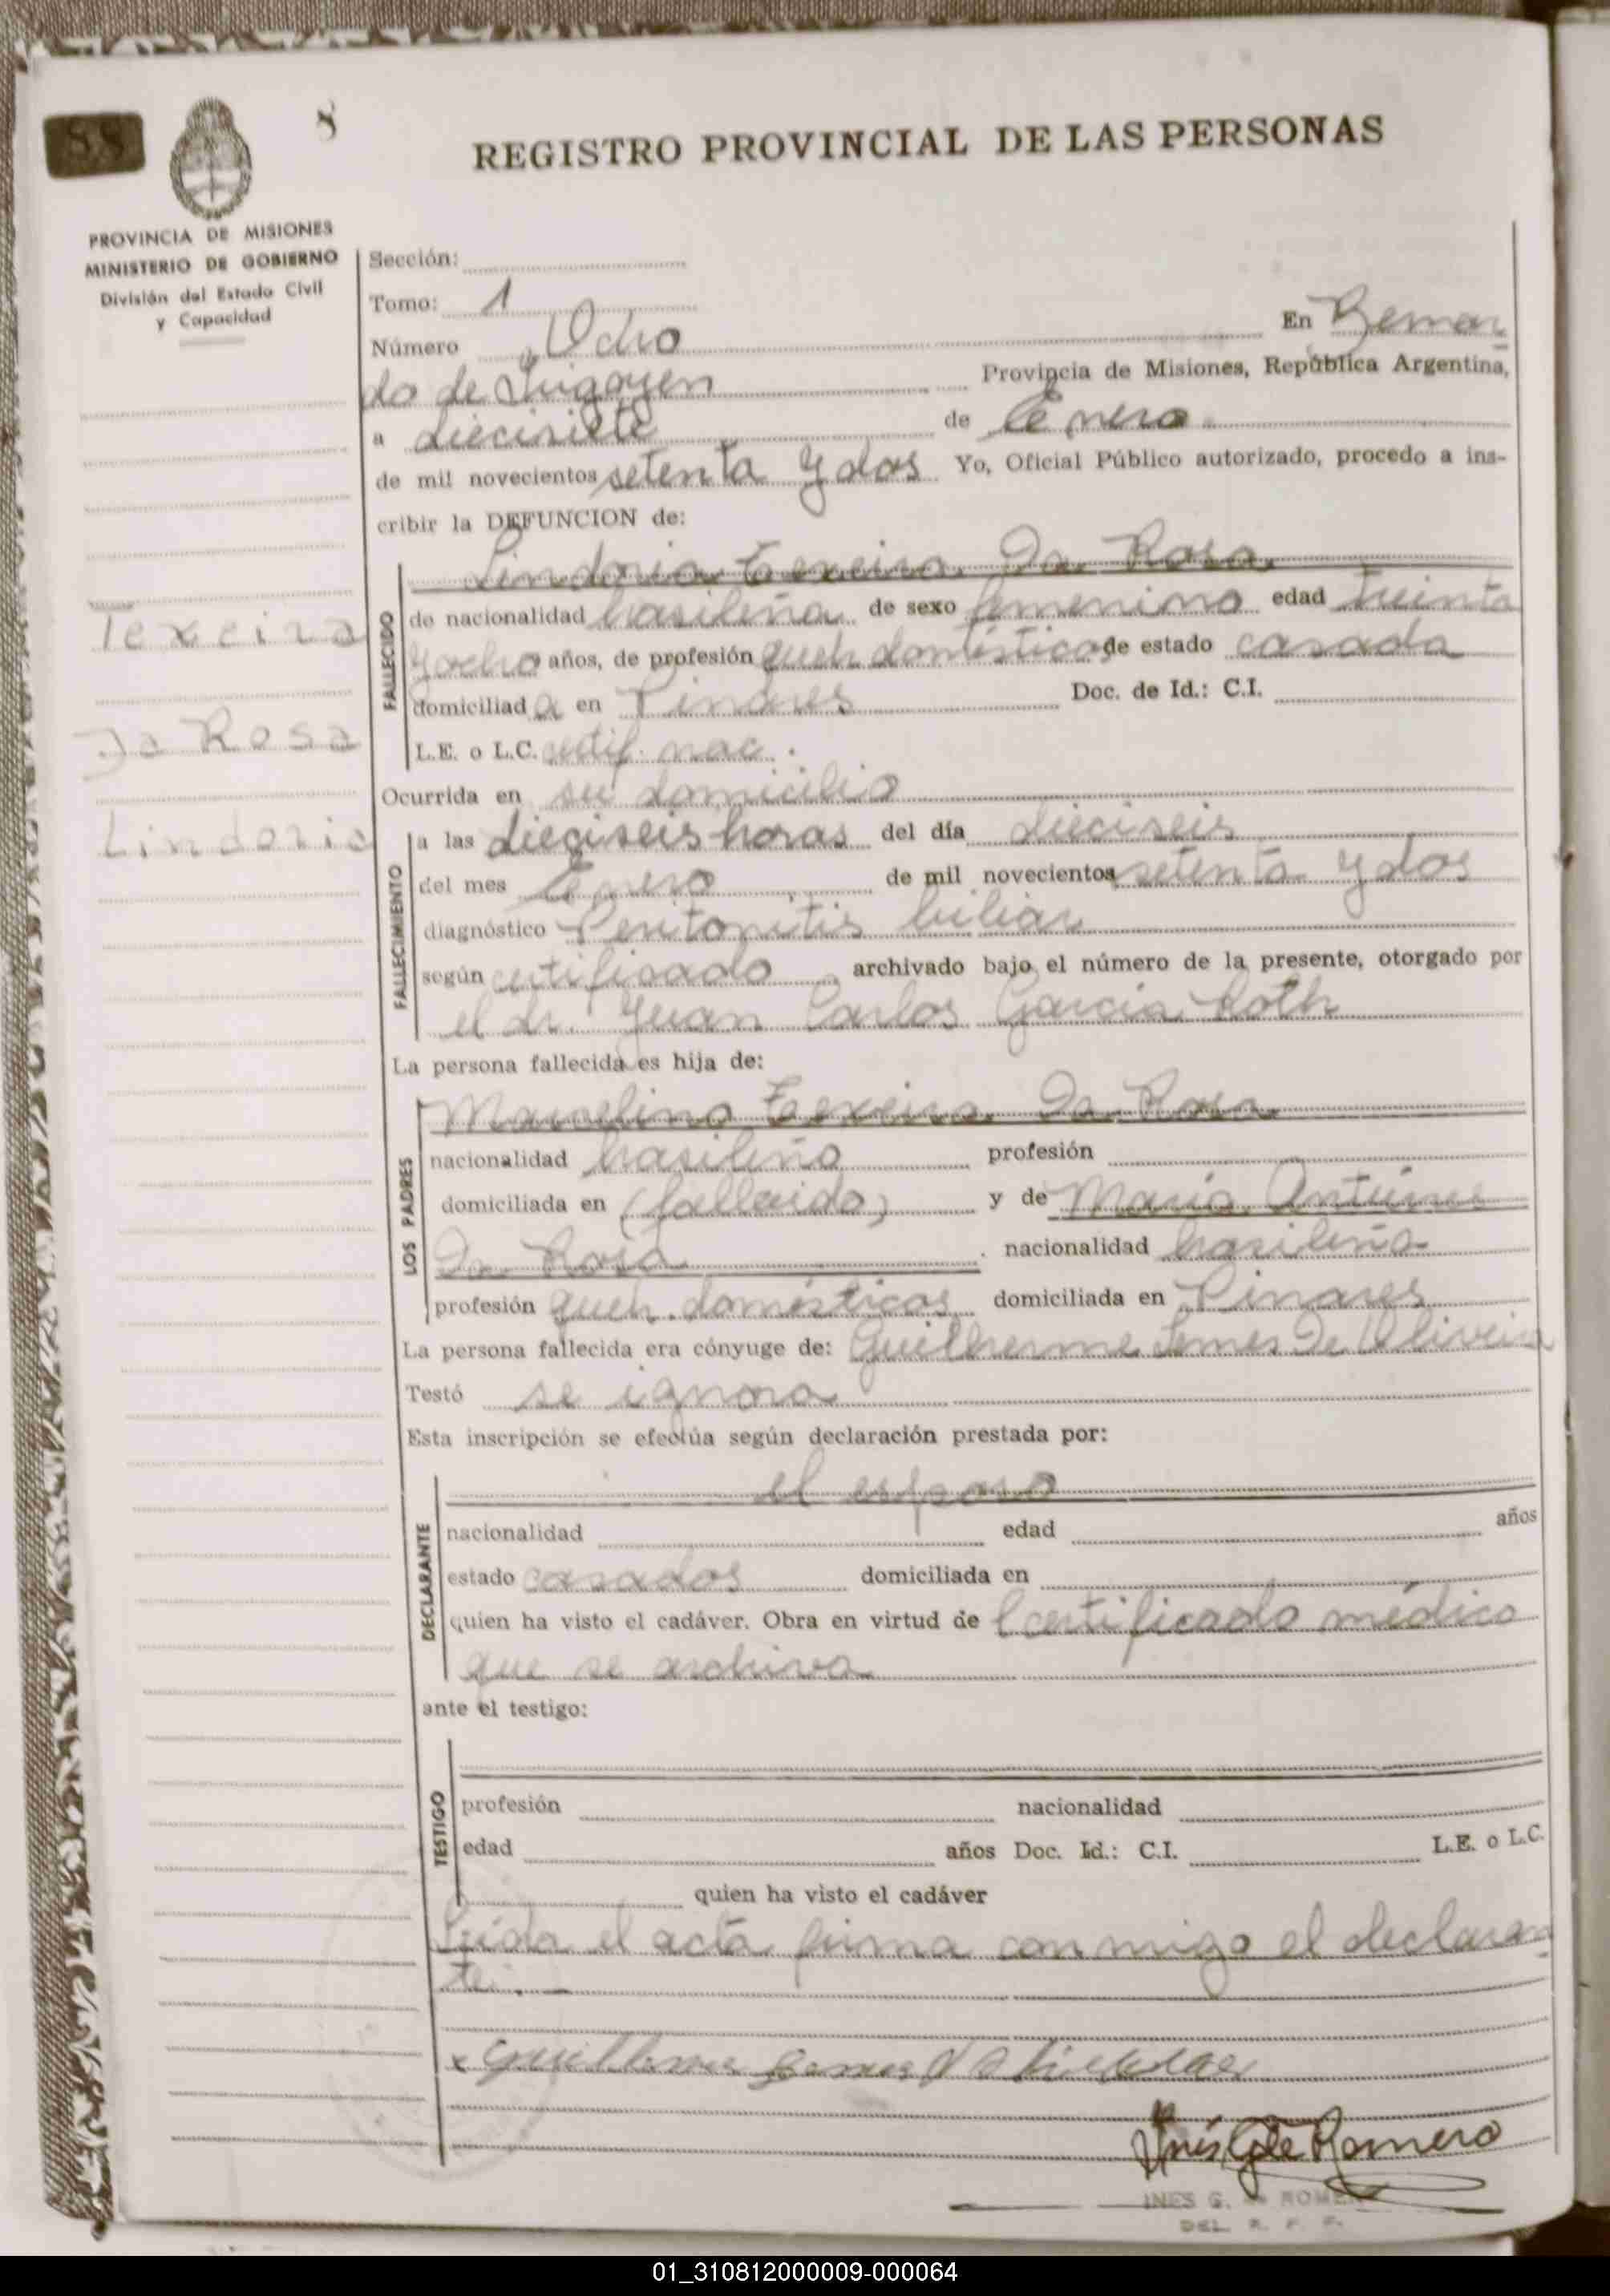 88
8
REGISTRO PROVINCIAL DE LAS PERSONAS
PROVINCIA DE MISIONES
MINISTERIO DE GOBIERNO
División del Estado Civil
y Capacidad
Texeira
Da Rosa
Lindoria
Sección:
Tomo: 1
Número Ocho En Bernar
do de Irigoyen Provincia de Misiones, República Argentina,
a diecisiete de Enero
de mil novecientos setenta y dos Yo, Oficial Público autorizado, procedo a ins-
cribir la DEFUNCION de:
FALLECIDO
Lindoria Texeira Da Rosa
de nacionalidad brasileña de sexo femenino edad treinta
y ocho años, de profesión queh domésticos de estado casada
domiciliad a en Pinares Doc. de Id.: C.I.
L.E. o L.C. certif. nac.
Ocurrida en su domicilio
FALLECIMIENTO
a las dieciseis horas del día dieciseis
del mes Enero de mil novecientos setenta y dos
diagnóstico Peritonitis biliar
según certificado archivado bajo el número de la presente, otorgado por
el dr. Juan Carlos Garcia Roth
La persona fallecida es hija de:
LOS PADRES
Marcelino Texeira Da Rosa
nacionalidad brasileño profesión
domiciliada en (fallecido) y de María Antunes
Da Rosa nacionalidad brasileña
profesión queh. domésticos domiciliada en Pinares
La persona fallecida era cónyuge de: Guilherme Lemes De Oliveira
Testó se ignora
Esta inscripción se efectúa según declaración prestada por:
DECLARANTE
el esposo
nacionalidad edad años
estado casados domiciliada en
quien ha visto el cadáver. Obra en virtud de Certificado médico
que se archiva
ante el testigo:
TESTIGO
profesión nacionalidad
edad años Doc. Id.: C.I. L.E. o L.C.
quien ha visto el cadáver
Leída el acta firma conmigo el declaran
te.
Inés G de Romero
INES G. ROMERO
DEL. R. P. P.
01_310812000009-000064